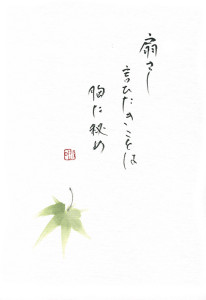 扇さし
言ひたきことは
胸に秘め